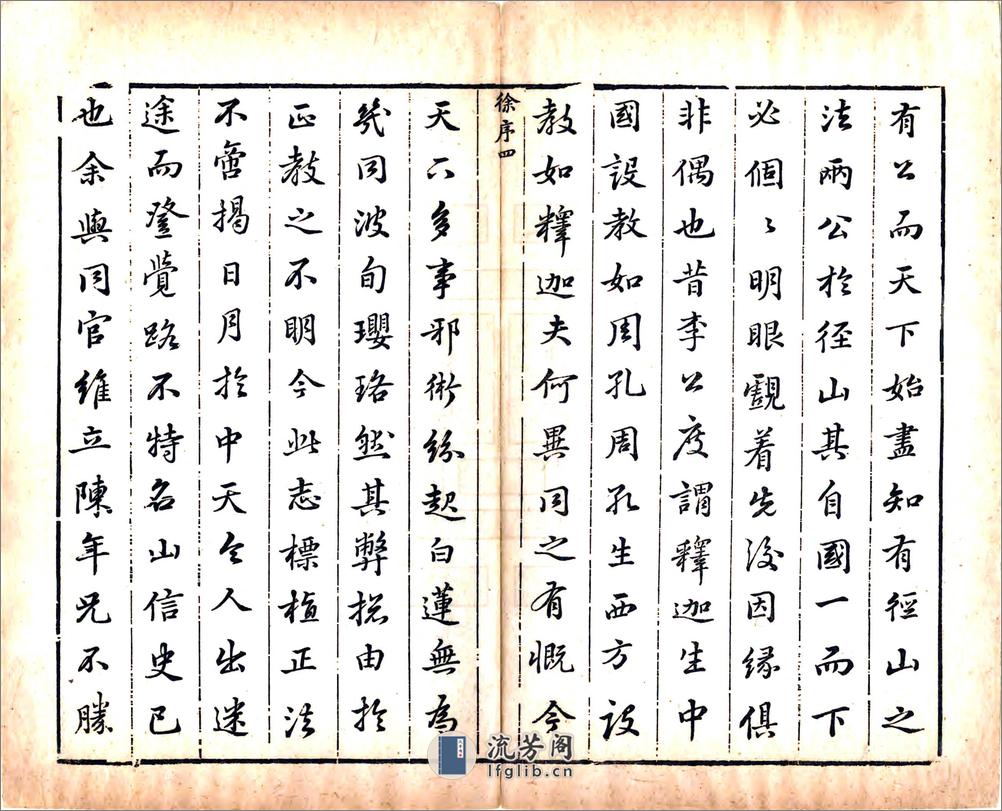 有公而天下始盡知有徑山之
法兩公於徑山其自國一而下
必個々明眼覷着先後因緣俱
非偶也昔李公度謂釋迦生中
國設教如周孔周孔生西方設
教如釋迦夫何異同之有慨今
徐序四
天下多事邪術紛起白蓮無為
幾同波旬瓔珞然其弊揔由於
正教之不明今此志標植正法
不啻揭日月於中天令人出迷
途而登覺路不特名山信史已
也余與同官維立陳年兄不勝
流芳阁
lfglib.cn